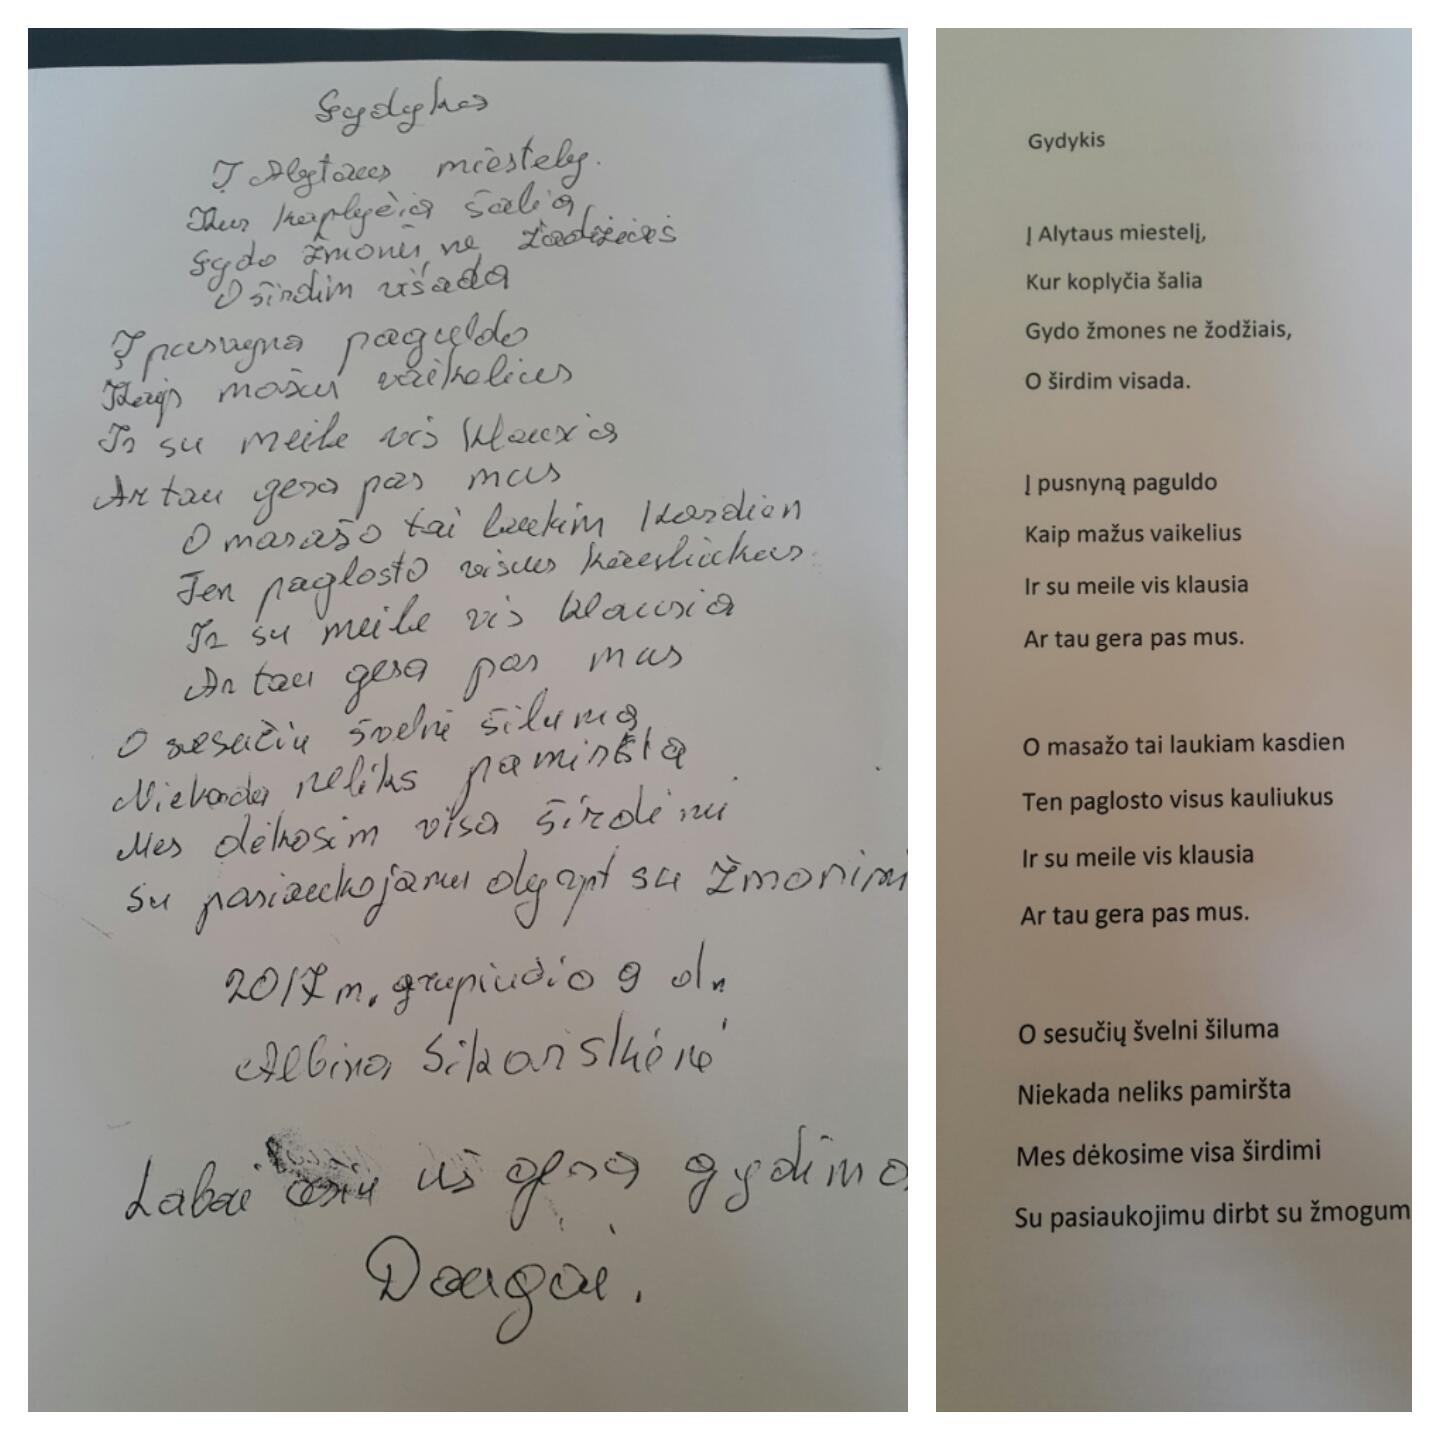 Gydykas
Į Alytaus miestely.
Kur koplyčia šalia
Gydo žmonis ne žodžiais
O širdim visada
Į pusnyna paguldo
Kaip mažus vaikelius
Ir su meile vis klausia
Ar tau gera pas mus
O masažo tai laukim kasdien
Ten paglosto visus kauliukus
Ir su meile vis klausia
Ar tau gera pas mus
O sesučiu švelni šiluma
Niekada neliks pamiršta
Mes dėkosim visa širdimi
Su pasiaukojamu su žmonimi
2017 m. grupiudžio 9 d.
Albina
Labai ačiū uš gera gydimo
Daugai.
Gydykis
Į Alytaus miestelį,
Kur koplyčia šalia
Gydo žmones ne žodžiais,
O širdim visada.
Į pusnyną paguldo
Kaip mažus vaikelius
Ir su meile vis klausia
Ar tau gera pas mus.
O masažo tai laukiam kasdien
Ten paglosto visus kauliukus
Ir su meile vis klausia
Ar tau gera pas mus.
O sesučių švelni šiluma
Niekada neliks pamiršta
Mes dėkosime visa širdimi
Su pasiaukojimu dirbt su žmogum